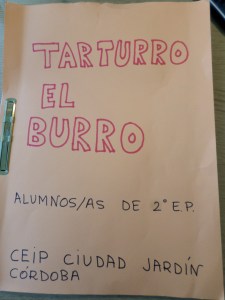 TARTURRO
EL
BURRO
ALUMNOS/AS DE 2º E.P.
CEIP CIUDAD JARDÍN
CÓRDOBA